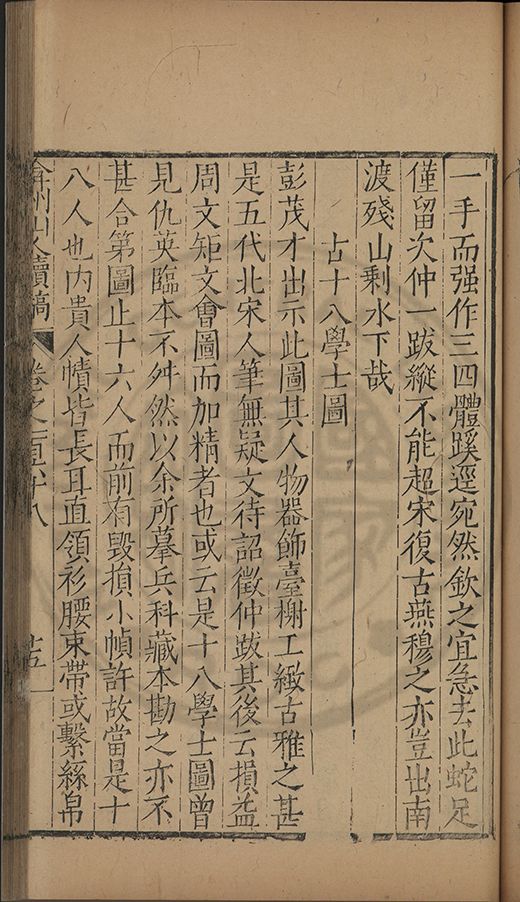 一手而强作三四體蹊逕宛然欽之宜急去此蛇足
僅留次仲一跋縱不能超宋復古燕穆之亦豈出南
渡殘山剩水下哉
古十八學士圖
彭茂才出示此圖其人物器飾臺榭工緻古雅之甚
是五代北宋人筆無疑文待詔徵仲跋其後云損益
周文矩文會圖而加精者也或云是十八學士圖曾
見仇英臨本不舛然以余所摹兵科藏本勘之亦不
甚合第圖止十六人而前有毀損小幀許故當是十
八人也內貴人幘皆長耳直領衫腰束帶或繫絲帛
弇州山人續稿 卷之一百六十八 十五